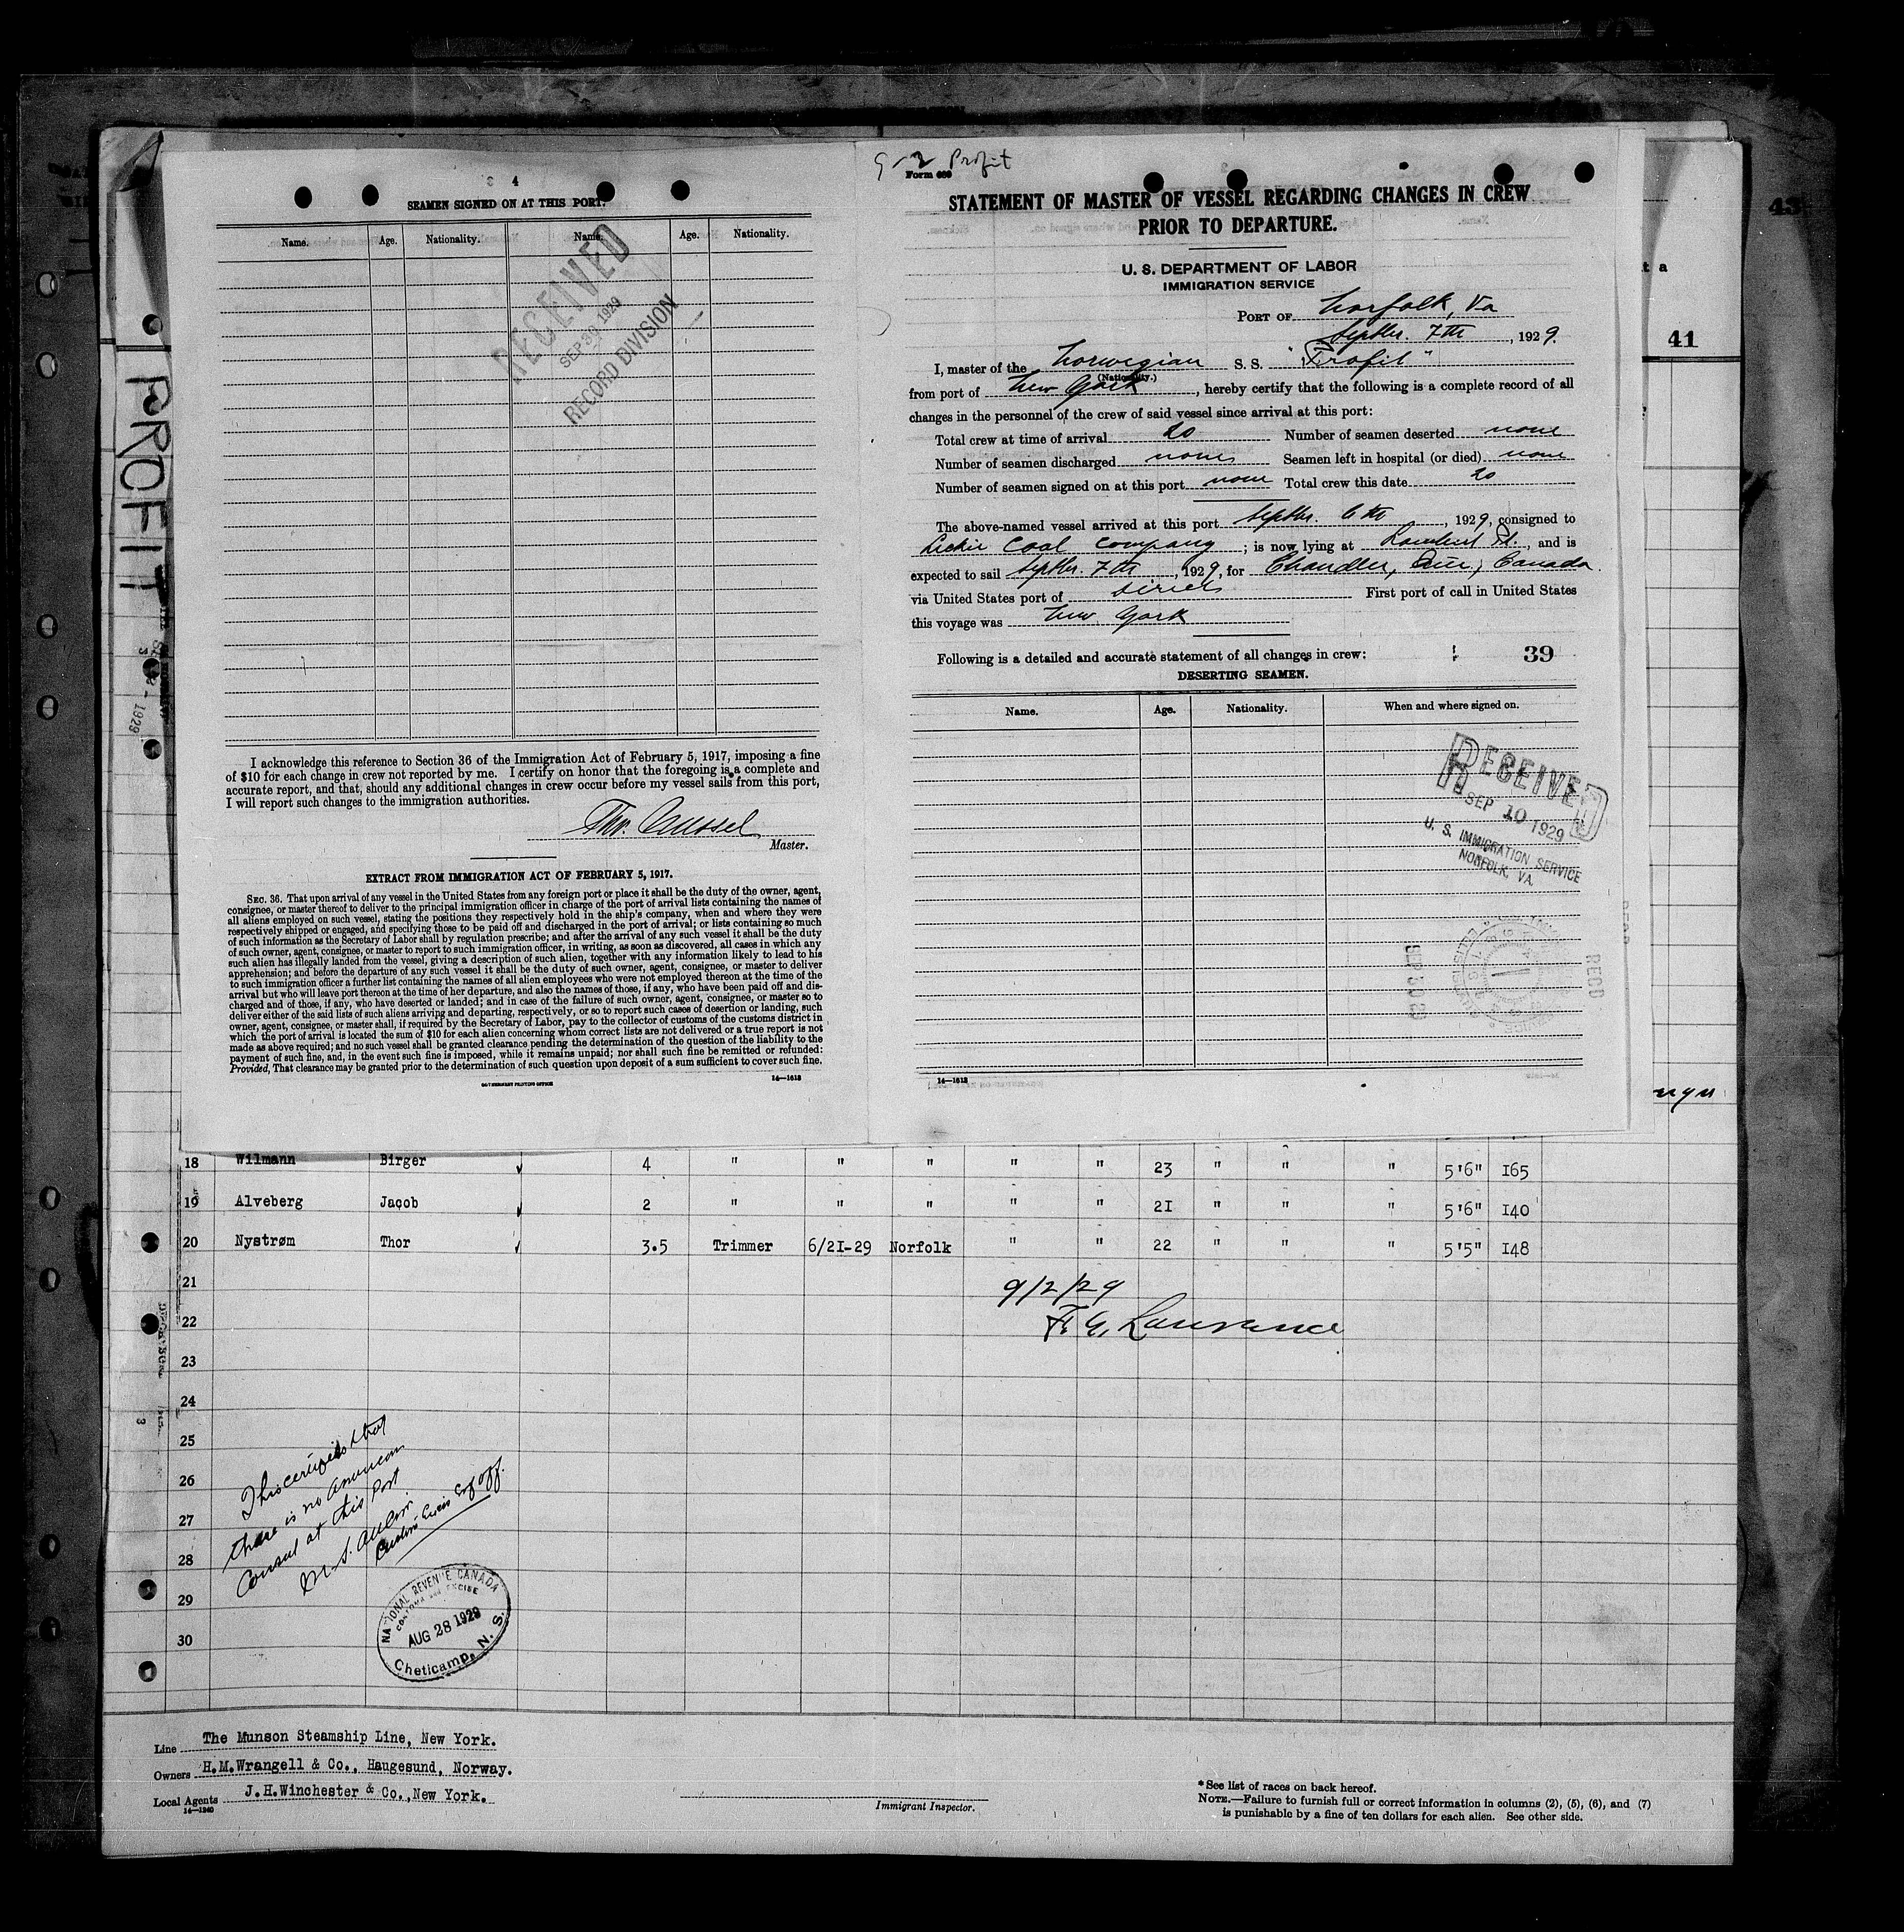 4
SEAMEN SIGNED ON AT THIS PORT.
Name. Age. Nationality. Name. Age. Nationality.
RECEIVED
SEP 30 1929
RECORD DIVISION
I acknowledge this reference to Section 36 of the Immigration Act of February 5, 1917, imposing a fine
of $10 for each change in crew not reported by me. I certify on honor that the foregoing is a complete and
accurate report, and that, should any additional changes in crew occur before my vessel sails from this port,
I will report such changes to the immigration authorities.
Master.
EXTRACT FROM IMMIGRATION ACT OF FEBRUARY 5, 1917.
SEC. 36. That upon arrival of any vessel in the United States from any foreign port or place it shall be the duty of the owner, agent,
consignee, or master thereof to deliver to the principal immigration officer in charge of the port of arrival lists containing the names of
all aliens employed on such vessel, stating the positions they respectively hold in the ship's company, when and where they were
respectively shipped or engaged, and specifying those to be paid off and discharged in the port of arrival; or lists containing so much
of such information as the Secretary of Labor shall by regulation prescribe; and after the arrival of any such vessel it shall be the duty
of such owner, agent, consignee, or master to report to such immigration officer, in writing, as soon as discovered, all cases in which any
such alien has illegally landed from the vessel, giving a description of such alien, together with any information likely to lead to his
apprehension; and before the departure of any such vessel it shall be the duty of such owner, agent, consignee, or master to deliver
to such immigration officer a further list containing the names of all alien employees who were not employed thereon at the time of the
arrival but who will leave port thereon at the time of her departure, and also the names of those, if any, who have been paid off and dis-
charged and of those, if any, who have deserted or landed; and in case of the failure of such owner, agent, consignee, or master so to
deliver either of the said lists of such aliens arriving and departing, respectively, or so to report such cases of desertion or landing, such
owner, agent, consignee, or master shall, if required by the Secretary of Labor, pay to the collector of customs of the customs district in
which the port of arrival is located the sum of $10 for each alien concerning whom correct lists are not delivered or a true report is not
made as above required; and no such vessel shall be granted clearance pending the determination of the question of the liability to the
payment of such fine, and, in the event such fine is imposed, while it remains unpaid; nor shall such fine be remitted or refunded:
Provided, That clearance may be granted prior to the determination of such question upon deposit of a sum sufficient to cover such fine.
GOVERNMENT PRINTING OFFICE 14—1613
9-2 Profit
Form 689
STATEMENT OF MASTER OF VESSEL REGARDING CHANGES IN CREW
PRIOR TO DEPARTURE.
U. S. DEPARTMENT OF LABOR
IMMIGRATION SERVICE
PORT OF Norfolk, Va
Septbr. 7th, 1929.
I, master of the Norwegian S. S. "Profit"
(Nationality.)
from port of New York, hereby certify that the following is a complete record of all
changes in the personnel of the crew of said vessel since arrival at this port:
Total crew at time of arrival 20 Number of seamen deserted none
Number of seamen discharged none Seamen left in hospital (or died) none
Number of seamen signed on at this port none Total crew this date 20
The above-named vessel arrived at this port Septbr. 6th, 1929, consigned to
Coal Company; is now lying at Pt., and is
expected to sail Septbr. 7th, 1929, for Chandler, Que, Canada.
via United States port of direct First port of call in United States
this voyage was New York
Following is a detailed and accurate statement of all changes in crew: 39
DESERTING SEAMEN.
Name. Age. Nationality. When and where signed on.
RECEIVED
SEP 10 1929
U. S. IMMIGRATION SERVICE
NORFOLK, VA.
RECD
SEP 30 29
14—1613
PROFIT
1929
41
43
18 Wilmann Birger 4 " " " " " 23 " " " 5'6" 165
19 Alveberg Jacob 2 " " " " " 21 " " " 5'6" 140
20 Nystrøm Thor 3.5 Trimmer 6/21-29 Norfolk " " 22 " " " 5'5" 148
21
9/2/29
22
23
24
25
26
27
28
29
30
This certifies that
there is no American
Consul at this Port
NATIONAL REVENUE CANADA
CUSTOMS AND EXCISE
AUG 28 1929
Cheticamp, N. S.
Line The Munson Steamship Line, New York.
Owners H.M.Wrangell & Co., Haugesund, Norway.
Local Agents J.H.Winchester & Co., New York.
14—1240
Immigrant Inspector.
* See list of races on back hereof.
NOTE.—Failure to furnish full or correct information in columns (2), (5), (6), and (7)
is punishable by a fine of ten dollars for each alien. See other side.